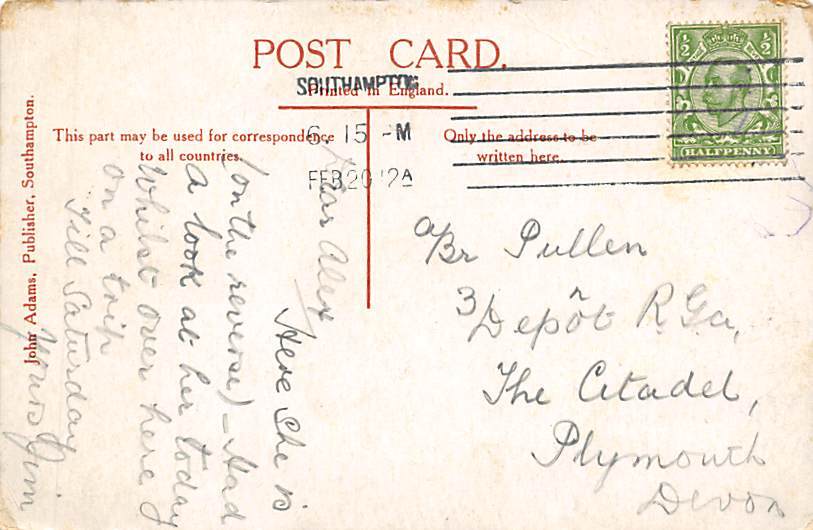 POST CARD.
Printed in England.
SOUTHAMPTON
6. 15 -M
FEB 20 12A
½ ½
HALFPENNY
This part may be used for correspondence
to all countries.
Only the address to be
written here.
John Adams, Publisher, Southampton.
Dear Alex
Here She is
(on the reverse) - Had
a look at her today
Whilst over here
on a trip
Till Saturday
Yours Jim
Br Pullen
3 Depôt R.G.A.
The Citadel,
Plymouth
Devon